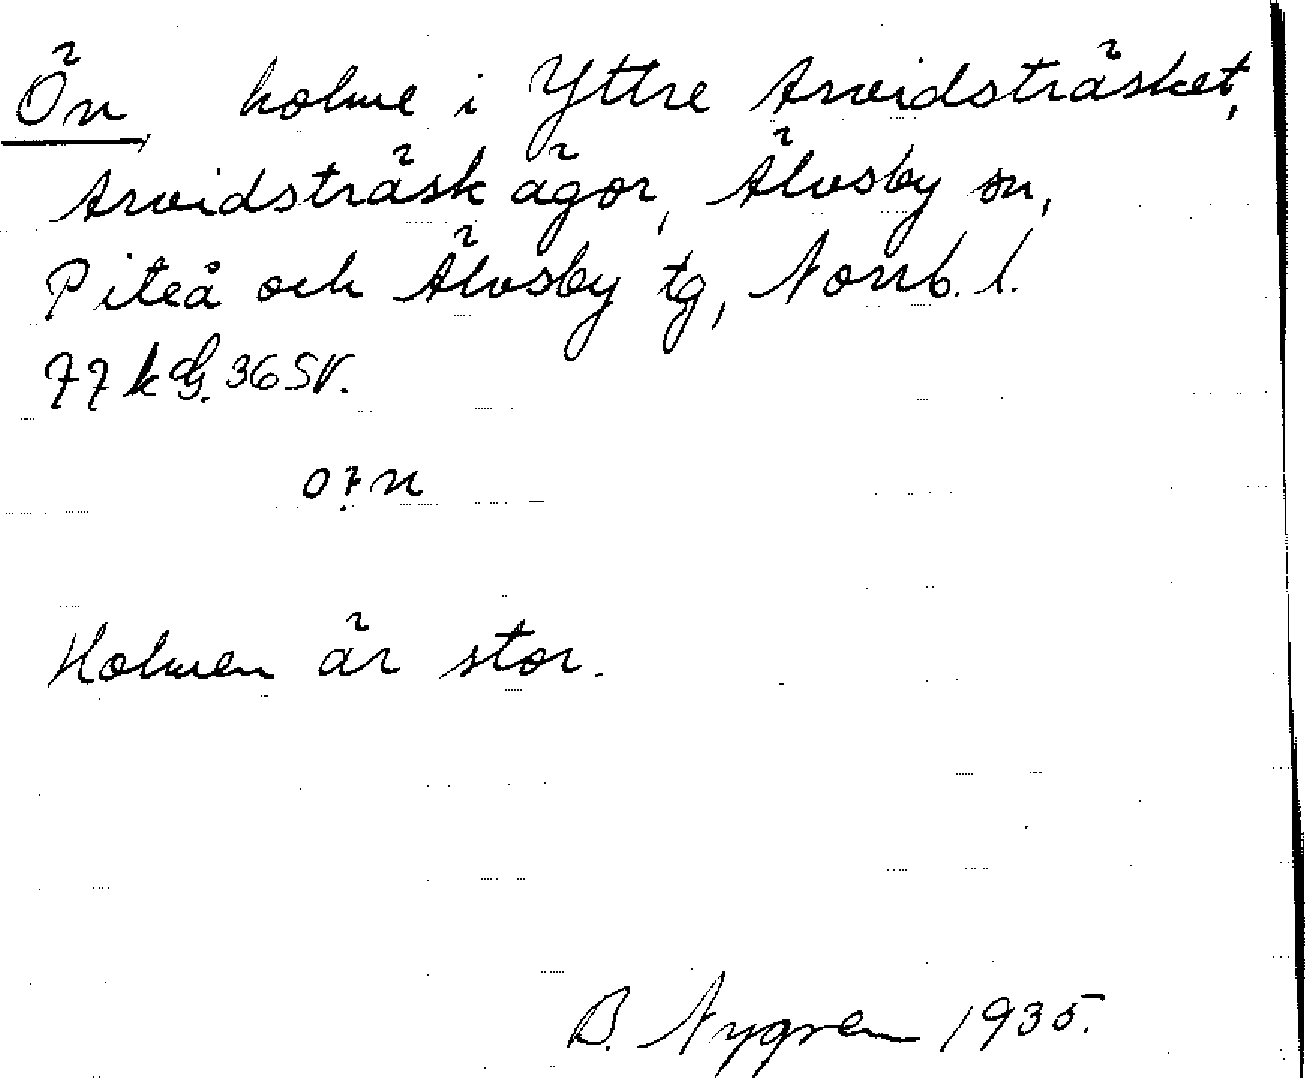 Ön, holme i Yttre Arvidsträsket,
Arvidsträsk ägor, Älvsby sn,
Piteå och Älvsby tg, Norrb. l.
77 k 36 SV.
Holmen är stor.
B. Nygren 1935.